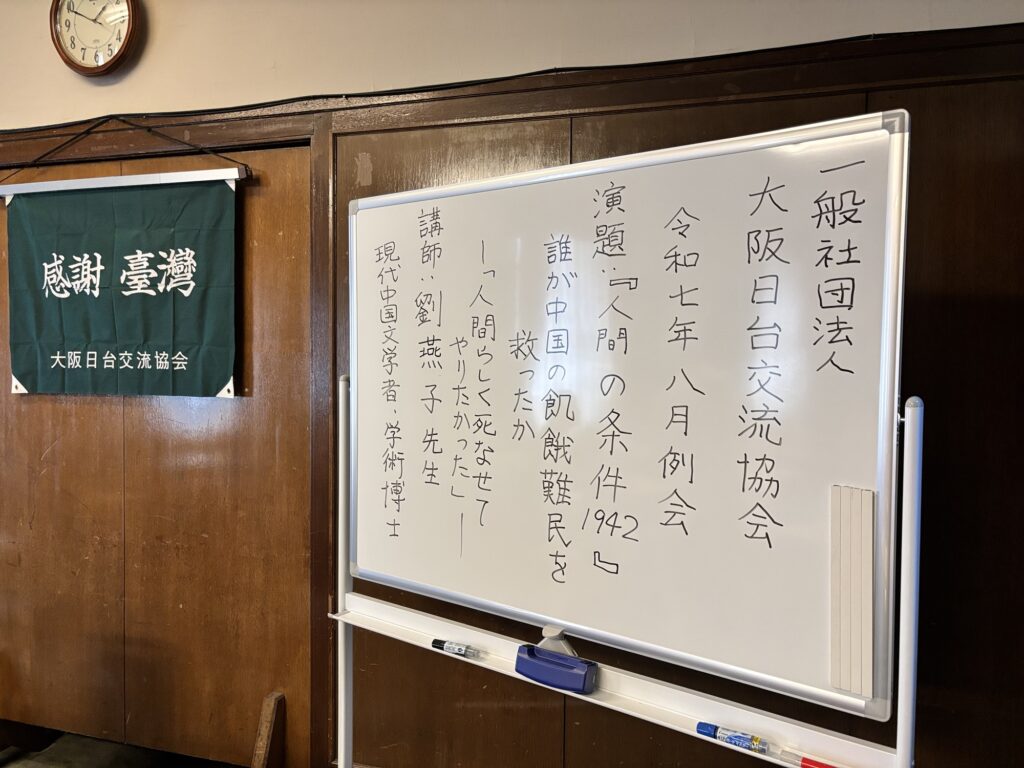 一般社団法人
大阪日台交流協会
令和七年 八月例会
演題:『人間の条件1942』
誰が中国の飢餓難民を
救ったか
―「人間らしく死なせて
やりたかった」―
講師:劉 燕子 先生
現代中国文学者、学術博士
感謝 臺灣
大阪日台交流協会